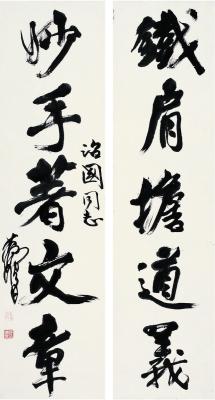 鐵肩擔道義
妙手著文章
治國同志